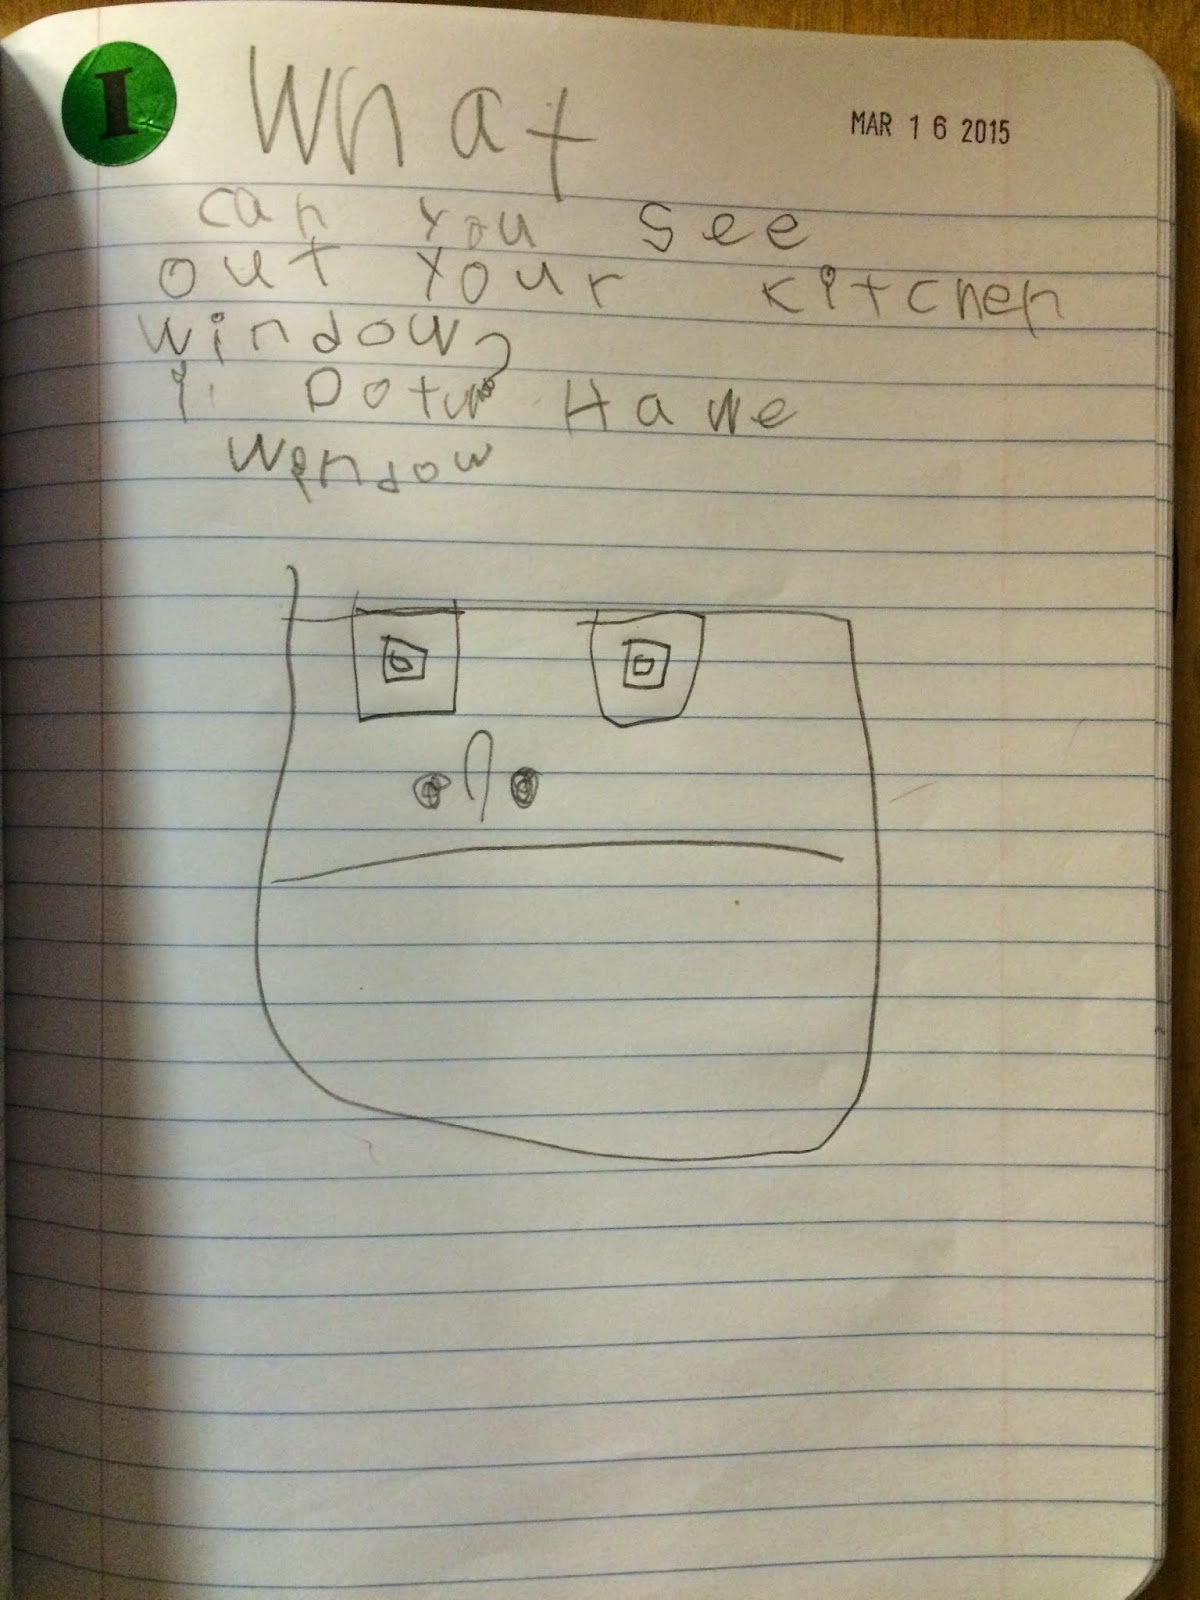 I
What
MAR 16 2015
can you see
out your kitchen
window?
i Dot Hawe
wendow